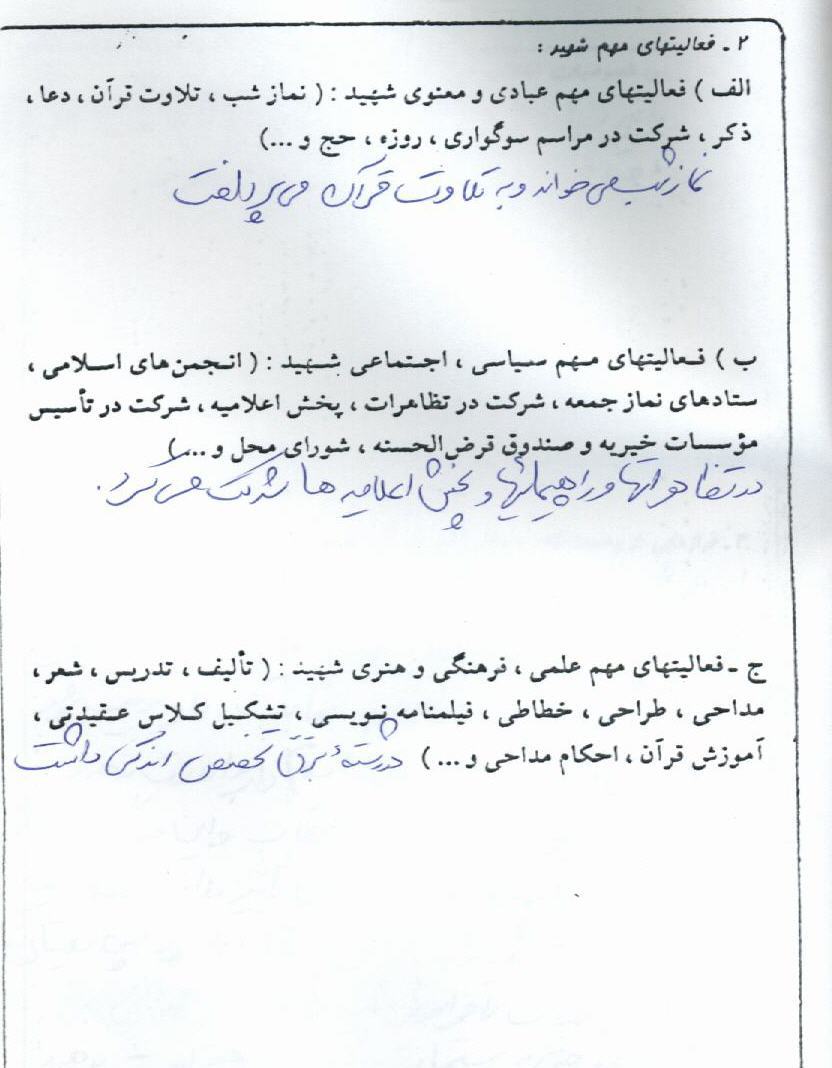 ۲ ـ فعالیتهای مهم شهید :
الف ) فعالیتهای مهم عبادی و معنوی شهید : ( نماز شب ، تلاوت قرآن ، دعا ،
ذکر ، شرکت در مراسم سوگواری ، روزه ، حج و ...)
نماز شب می خواند و به تلاوت قرآن می پرداخت
ب ) فعالیتهای مهم سیاسی ، اجتماعی شهید : ( انجمن‌های اسلامی ،
ستادهای نماز جمعه ، شرکت در تظاهرات ، پخش اعلامیه ، شرکت در تأسیس
مؤسسات خیریه و صندوق قرض‌الحسنه ، شورای محل و ...)
در تظاهراتها و راهپیمائیها و پخش اعلامیه ها شرکت می کرد .
ج ـ فعالیتهای مهم علمی ، فرهنگی و هنری شهید : ( تألیف ، تدریس ، شعر ،
مداحی ، طراحی ، خطاطی ، فیلمنامه نویسی ، تشکیل کلاس عقیدتی ،
آموزش قرآن ، احکام مداحی و ... ) در رشتهٔ برق تخصص اندکی داشت